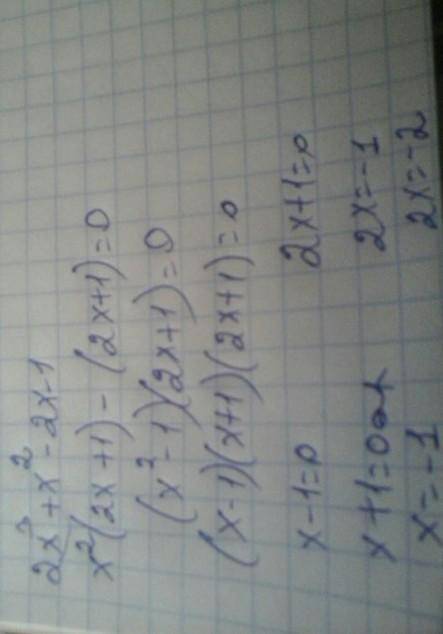 2x³+x²-2x-1
x²(2x+1)-(2x+1)=0
(x²-1)(2x+1)=0
(x-1)(x+1)(2x+1)=0
x-1=0 2x+1=0
x+1=0 2x=-1
x=-1 2x=-2